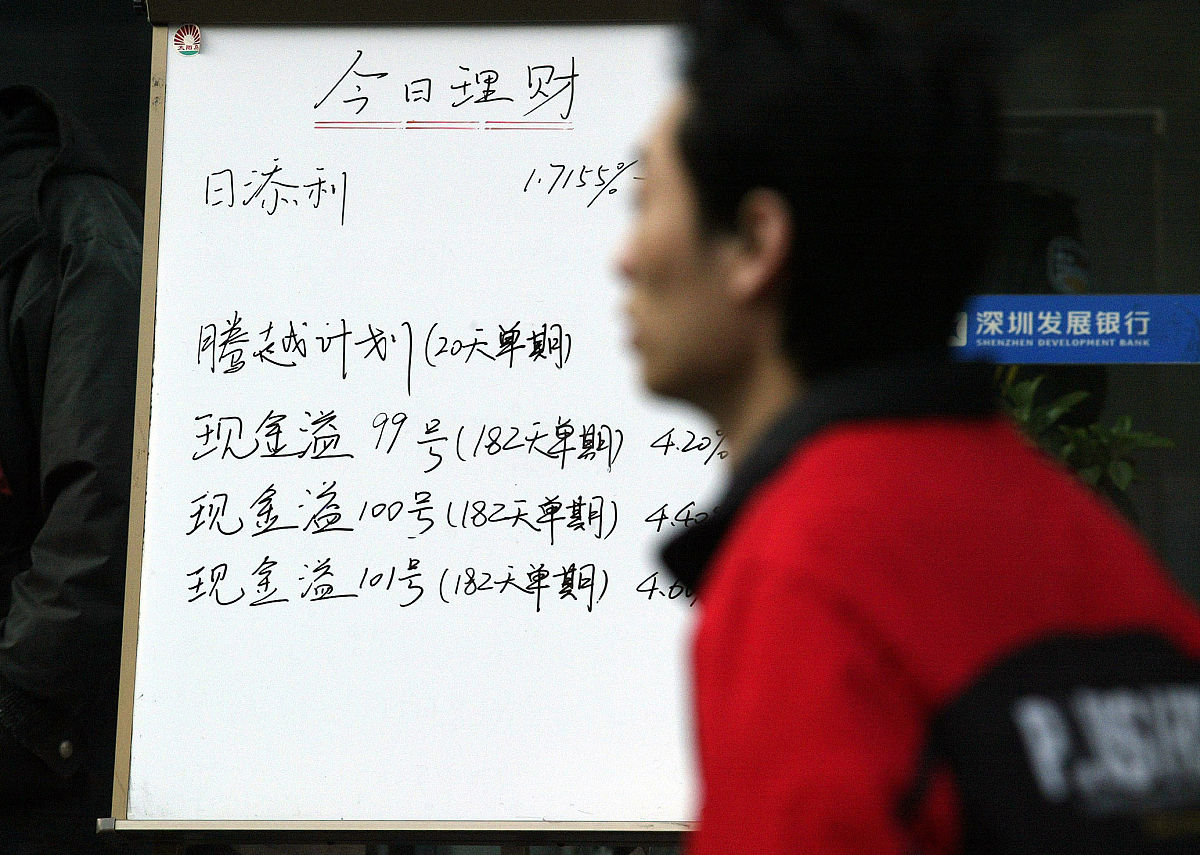 太阳岛
今日理财
日添利 1.7155%
腾越计划(20天单期)
现金溢 99号(182天单期) 4.20%
现金溢100号(182天单期) 4.40
现金溢101号(182天单期) 4.60
深圳发展银行
SHENZHEN DEVELOPMENT BANK